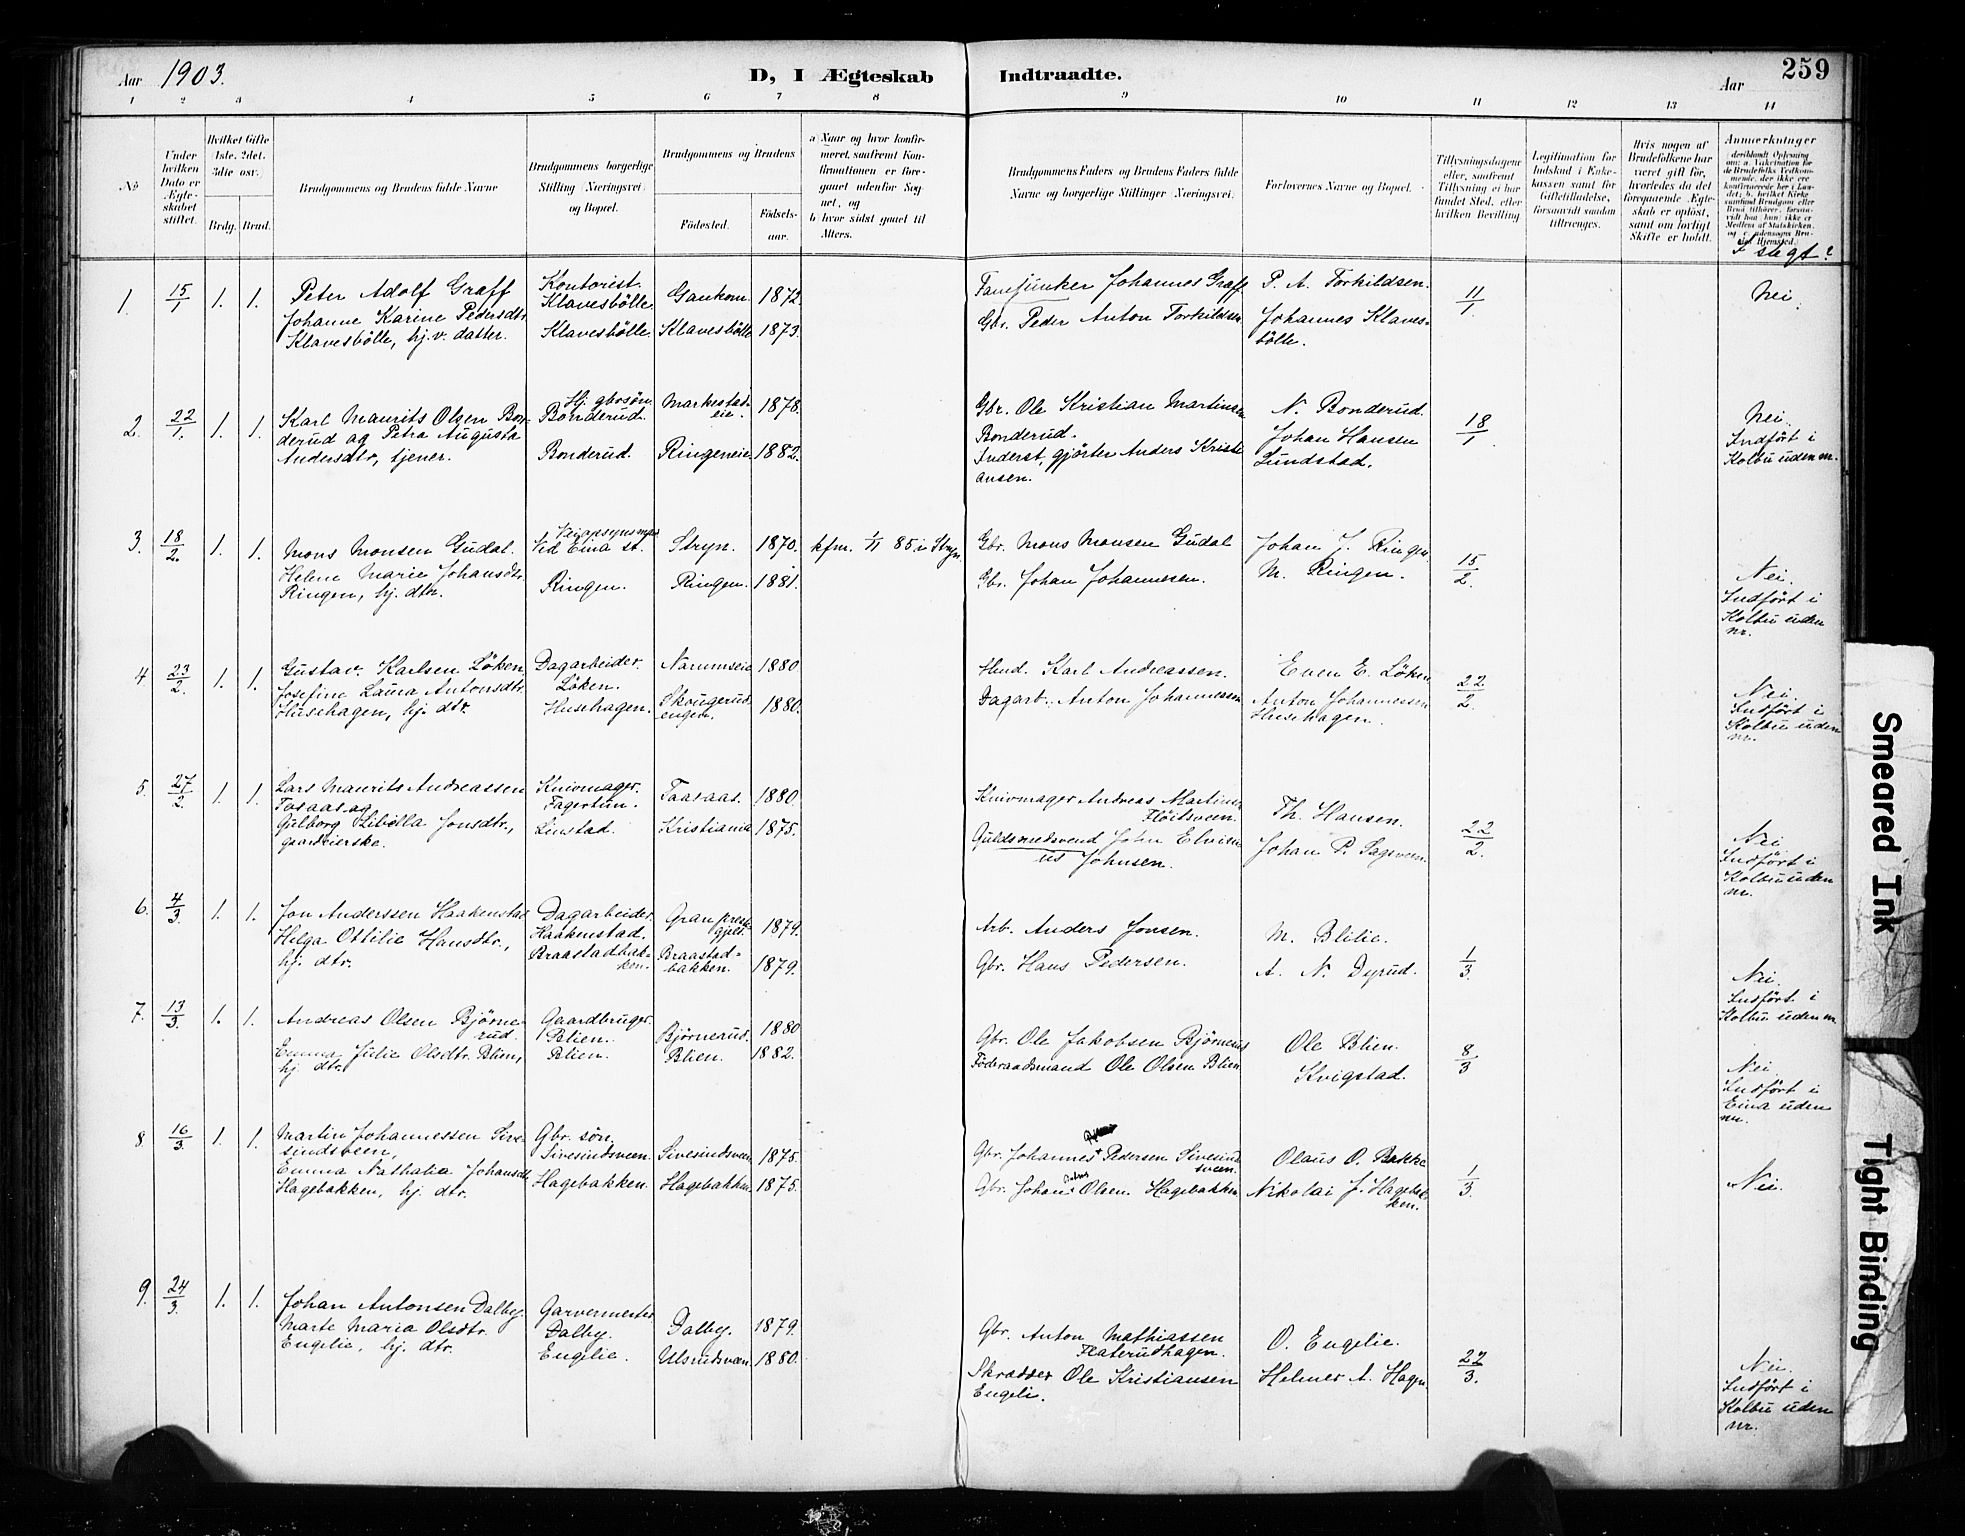 Aar 1903. D, I Ægteskab Indtraadte. Aar 259
1 2 3 4 5 6 7 8 9 10 11 12 13 14
No
Under hvilken Dato er Ægteskabet stiftet.
Hvilket Gifte 1ste. 2det. 3die osv.
Brdg. Brud.
Brudgommens og Brudens fulde Navne
Brudgommens borgerlige Stilling (Næringsvei) og Bopæl.
Brudgommens og Brudens
Fødested. Fødselsaar.
a Naar og hvor konfirmeret, saafremt Konfirmationen er foregaaet udenfor Sognet, og
b hvor sidst gaaet til Alters.
Brudgommens Faders og Brudens Faders fulde Navne og borgerlige Stillinger (Næringsvei).
Forlovernes Navne og Bopæl.
Tillysningsdagene eller, saafremt Tillysning ei har fundet Sted, efter hvilken Bevilling.
Legitimation for Indskud i Enkekassen samt for Giftetilladelse, forsaavidt saadan tiltrænges.
Hvis nogen af Brudefolkene har været gift før, hvorledes da det foregaaende Ægteskab er opløst, samt om lovligt Skifte er holdt.
Anmerkninger
I slegt?
1. 15/1 1. 1. Peter Adolf Graff Kontorist. Gaukom. 1872. Fanejunker Johannes Graff. P. A. Torkildsen. 11/1 Nei.
Johanne Karine Pedersdtr. Klavesbölle.
Klavesbölle, hj.v. datter. Klavesbölle. Klavesbölle 1873. Gbr. Peder Anton Torkildsen Johannes Klaves-
bölle.
2. 22/1. 1. 1. Karl Maurits Olsen Bon- Hj. gbrsön. Markestad- 1878. Gbr. Ole Kristian Martinsen N. Bonderud. 18/1 Nei.
derud og Petra Augusta Bonderud. eie. Bonderud. Johan Hansen Indfört i
Andersdtr, tjener. Bonderud. Ringeneie. 1882. Inderst, gjörtler Anders Kristi- Lundstad. Kolbu uden nr.
ansen.
3. 18/2. 1. 1. Mons Monsen Gudal. Ved Eina st. Stryn. 1870. kfm. 1/11 85 i Stryn. Gbr. Mons Monsen Gudal Johan J. Ringen 15/2. Nei.
Helene Marie Johansdtr. Gbr. Johan Johannesen. M. Ringen. Indfört i
Ringen, hj. dtr. Ringen. Ringen. 1881. Kolbu uden
nr.
4. 23/2. 1. 1. Gustav Karlsen Löken. Dagarbeider. Narumseie 1880 Karl Andreassen. Even E. Löken 22/2. Nei.
Josefine Laura Antonsdtr. Löken. Indfört i
Husehagen, hj. dtr. Husehagen. Skougerud- 1880. Dagarb. Anton Johannessen Anton Johannessen Kolbu uden
engen. Husehagen. nr.
5. 27/2 1. 1. Lars Maurits Andreassen Knivmager. Taasaas. 1880. Knivmager Andreas Martins. Th. Hansen. 22/2. Nei
Taasaas og Fagertun. Flöitsveen. Indfört i
Gulborg Libella Jonsdtr., Linstad. Kristiania 1875. Guldsmedsvend John Johan P. Sagsveen. Kolbu uden
gaardeierske. Johnsen. nr.
6. 4/3. 1. 1. Jon Anderssen Haakenstad Dagarbeider. Gran prest- 1879. Arb. Anders Jonsen. M. Blilie. 1/3. Nei.
Helga Ottilie Hansdtr., Haakenstad. gjeld. Indfört i
hj. dtr. Braastadbak- Braastad- 1879. Gbr. Hans Pedersen. A. N. Dyrud. Kolbu uden nr.
ken. bakken.
7. 13/3 1. 1. Andreas Olsen Bjørne- Gaardbruger. Bjørnerud. 1880 Gbr. Ole Jakobsen Bjørnerud Ole Blien. 8/3 Nei.
rud. Blien. Indfört i
Emma Julie Olsdtr. Blien, Blien. Blien. 1882. Föderaadsmand Ole Olsen Blien. Kvigstad. Eina uden
hj. dtr. nr.
8. 16/3 1. 1. Martin Johannessen Sive- Gbr. sön. Sivesindsveen. 1875. Gbr. Johannes Pedersen Sivesind- Olaus O. Bakke 1/3. Nei.
sindsveen, Sivesindsveen. sveen.
Emma Nathalia Johansdtr.
Hagebakken, hj. dtr. Hagebakken. Hagebakken. 1875. Gbr. Johan Olsen Hagebakken. Nikolai J. Hagebak-
ken.
9. 24/3. 1. 1. Johan Antonsen Dalby. Garvermester Dalby. 1879. Gbr. Anton Mathiassen O. Engelie. 22/3. Nei.
Marte Maria Olsdtr. Dalby. Flaterudhagen. Indfört i
Engelie, hj. dtr. Engelie. Ulsrudsveen 1880. Skrædder Ole Kristiansen Helmer A. Hagen. Kolbu uden
Engeli. nr.
Smeared Ink
Tight Binding